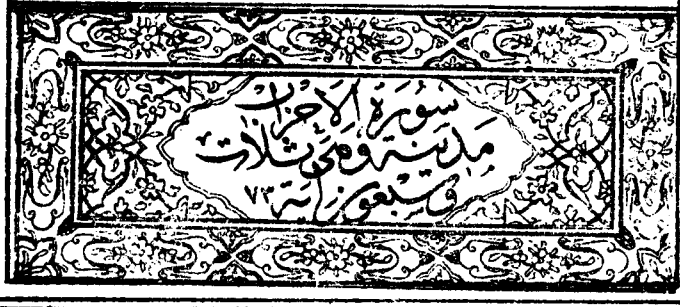 سُورَةُ الْأَحْزَابِ
مَدَنِيَّةٌ وَهِيَ ثَلَاثٌ
وَسَبْعُونَ آيَةً ٧٣